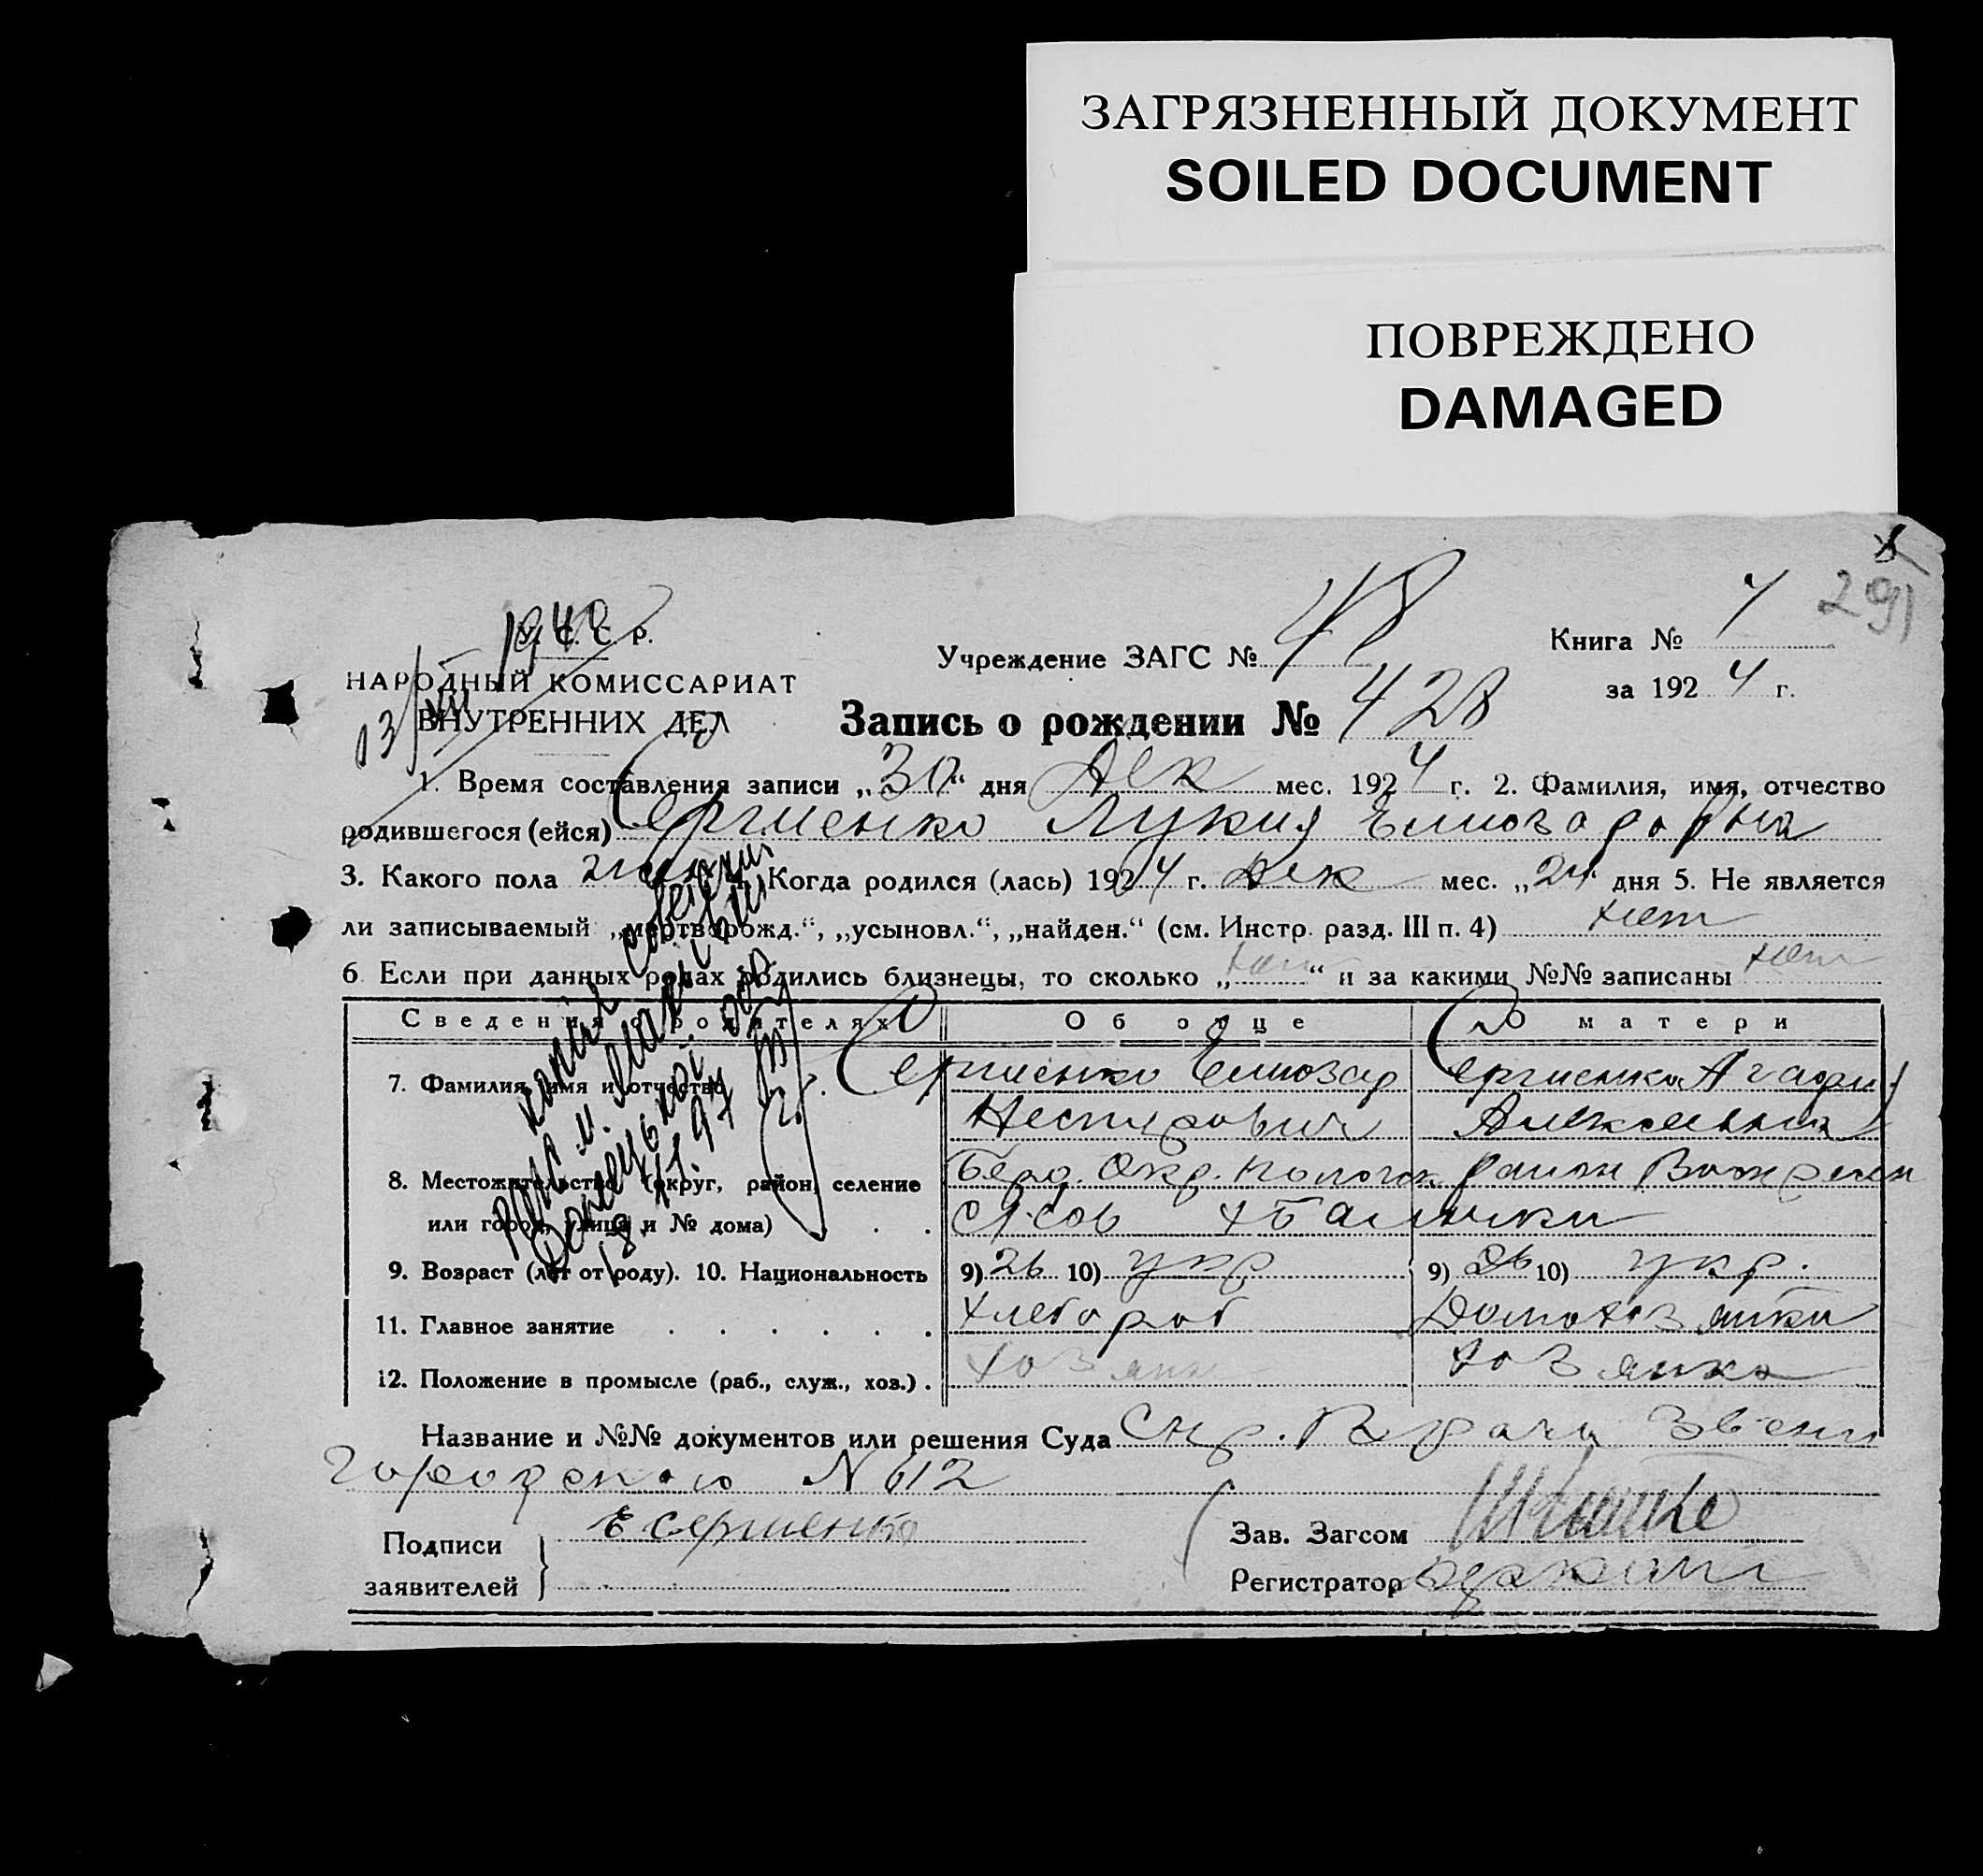 ЗАГРЯЗНЕННЫЙ ДОКУМЕНТ
SOILED DOCUMENT
ПОВРЕЖДЕНО
DAMAGED
291
У. С. С. Р.
1940
НАРОДНЫЙ КОМИССАРИАТ
ВНУТРЕННИХ ДЕЛ
13/VII
Учреждение ЗАГС № 48
Книга №
за 1924 г.
Запись о рождении № 428
1. Время составления записи „30“ дня Дек мес. 1924 г. 2. Фамилия, имя, отчество
родившегося (ейся) Сергиенко Лукия Елиозаровна
3. Какого пола жен 4. Когда родился (лась) 1924 г. Дек мес. „24“ дня 5. Не является
ли записываемый „мертворожд.“, „усыновл.“, „найден.“ (см. Инстр. разд. III п. 4) нет
6. Если при данных родах родились близнецы, то сколько „нет“ и за какими №№ записаны нет
Сведения о родителях Об отце О матери
7. Фамилия, имя и отчество Сергиенко Елиозар Сергиенко Агафи
Нестирович
8. Местожительство (округ, район, селение Берд. Окр. район
или город, улица и № дома)
9. Возраст (лет от роду). 10. Национальность 9) 26 10) укр 9) 26 10) укр.
11. Главное занятие хлебороб Домохозяйка
12. Положение в промысле (раб., служ., хоз.) хозяин хозяйка
Название и №№ документов или решения Суда Спр. Врача Звени
городского N 612
Подписи
заявителей
Е Сергиенко
Зав. Загсом
Регистратор